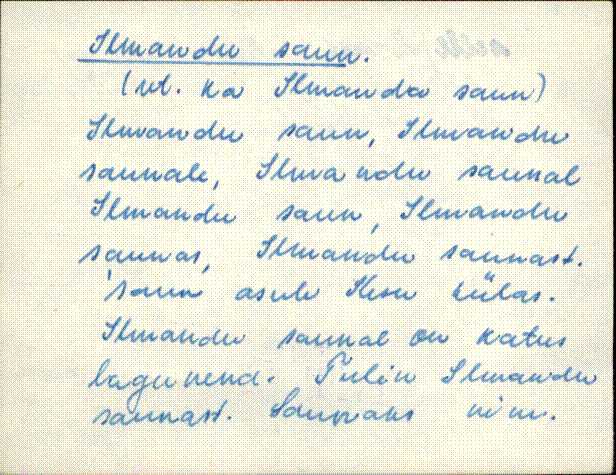 Ilmandu saun.
(vt. ka Ilmanda saun)
Ilmandu saun, Ilmandu
saunale, Ilmandu saunal
Ilmandu saun, Ilmandu
saunas, Ilmandu saunast.
saun asub Kesu külas.
Ilmandu saunal on katus
lagunend. Tulin Ilmandu
saunast. Saunaks nim.